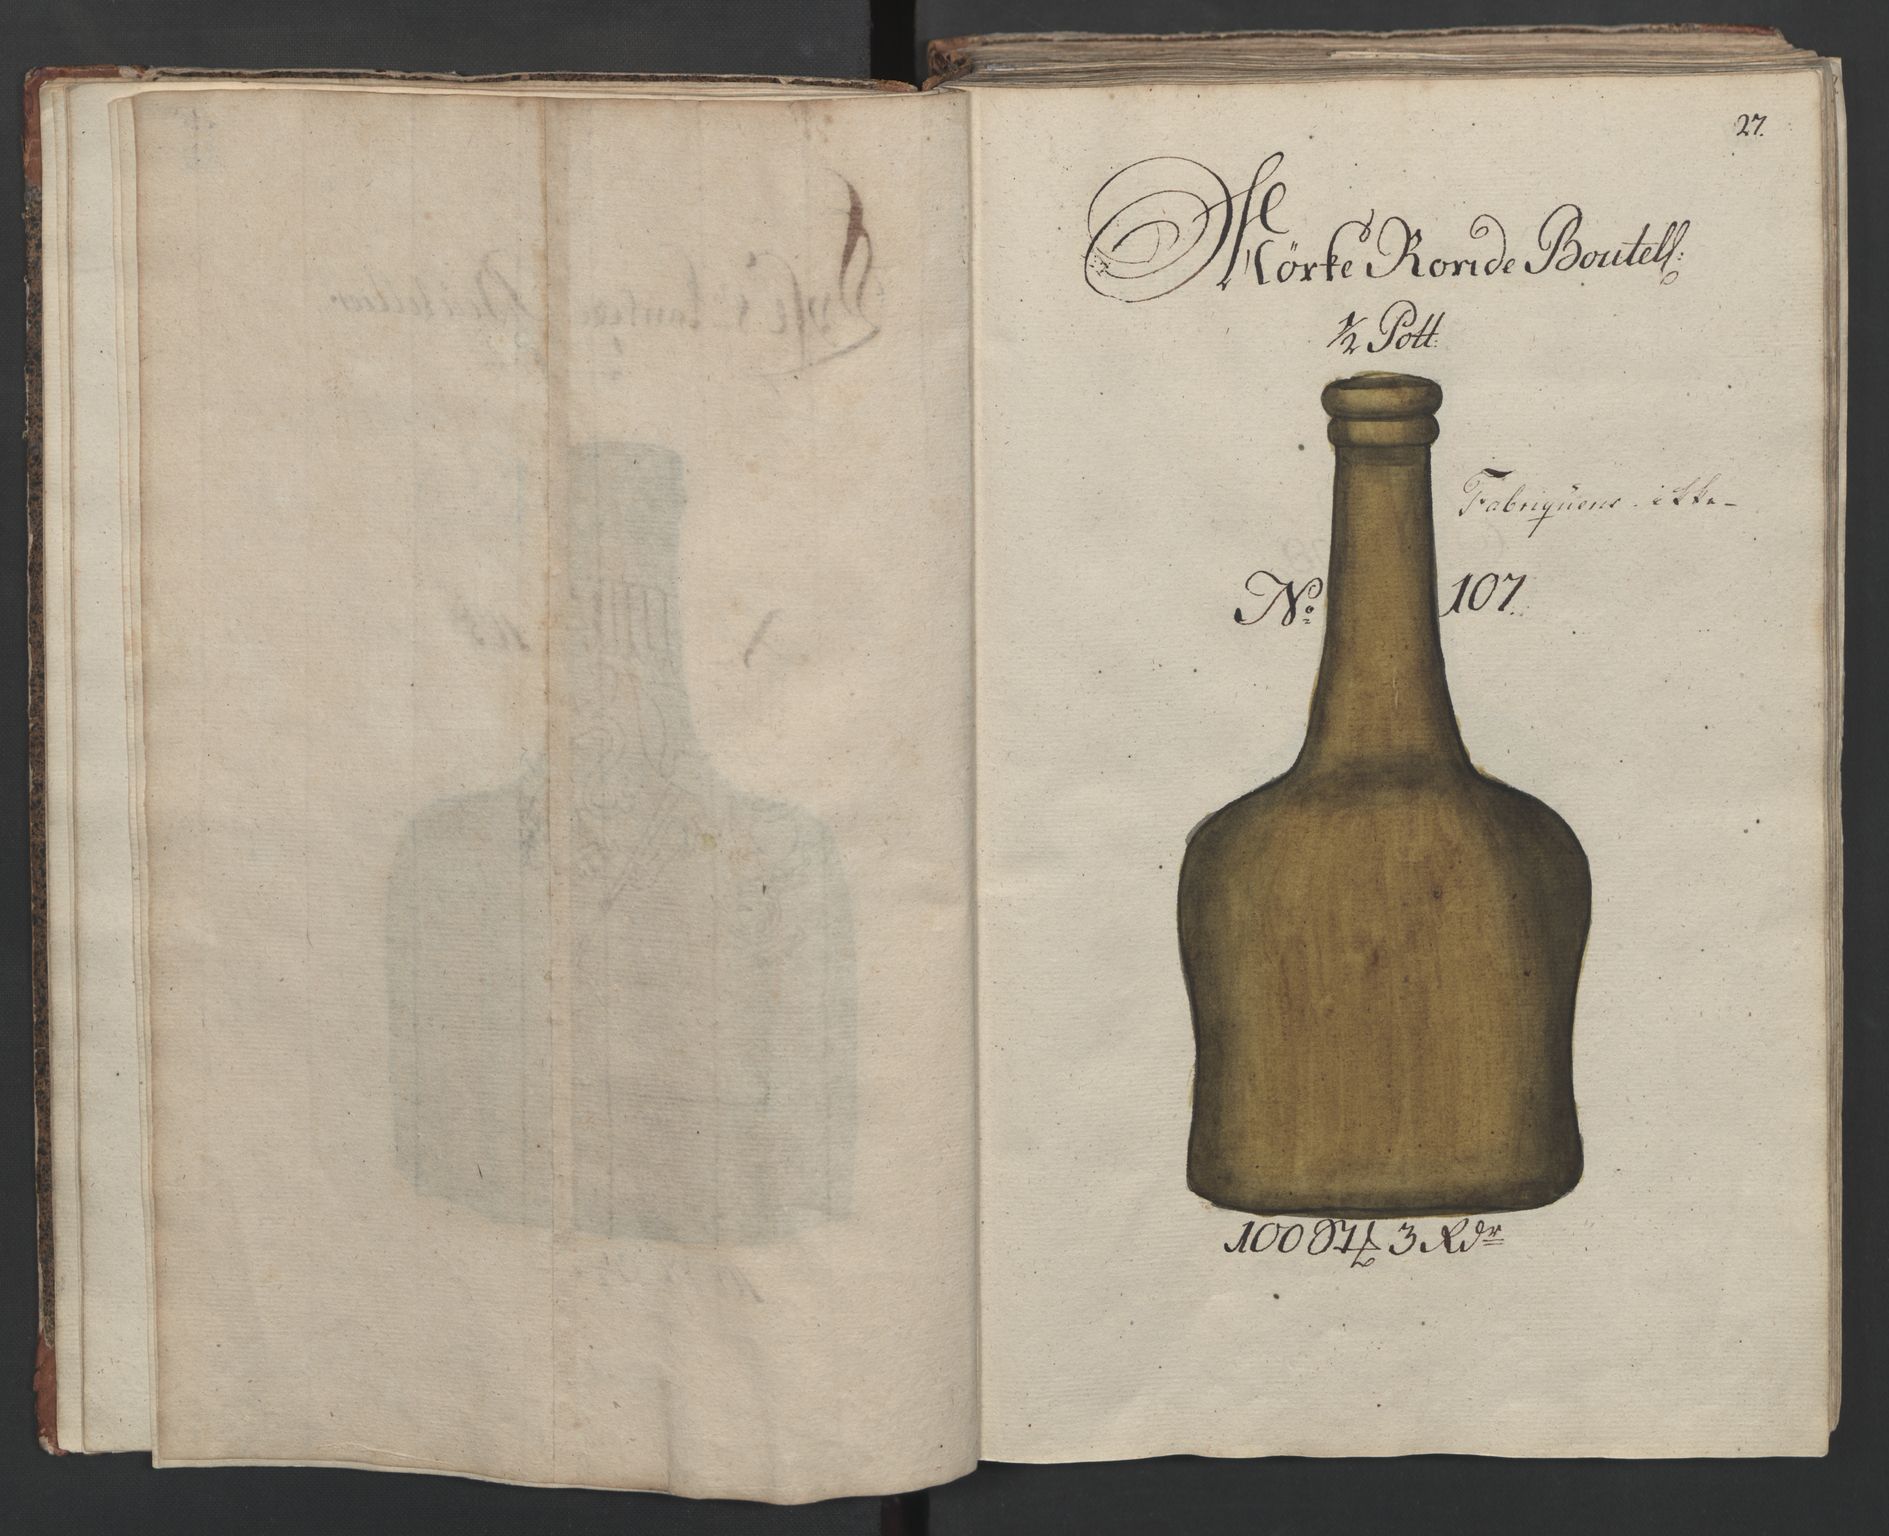 27.
Mörke Ronde Boutell:
1/2 Pott.
Fabriquens ikke-
No: 107.
100 St 3 Rdr